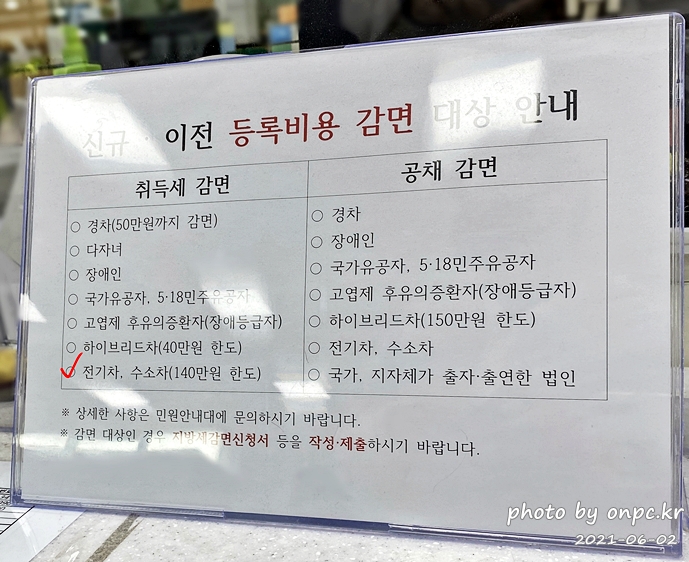 신규 · 이전 등록비용 감면 대상 안내
취득세 감면
○ 경차(50만원까지 감면)
○ 다자녀
○ 장애인
○ 국가유공자, 5·18민주유공자
○ 고엽제 후유의증환자(장애등급자)
○ 하이브리드차(40만원 한도)
○ 전기차, 수소차(140만원 한도)
공채 감면
○ 경차
○ 장애인
○ 국가유공자, 5·18민주유공자
○ 고엽제 후유의증환자(장애등급자)
○ 하이브리드차(150만원 한도)
○ 전기차, 수소차
○ 국가, 지자체가 출자·출연한 법인
※ 상세한 사항은 민원안내대에 문의하시기 바랍니다.
※ 감면 대상인 경우 지방세감면신청서 등을 작성·제출하시기 바랍니다.
photo by onpc.kr
2021-06-02